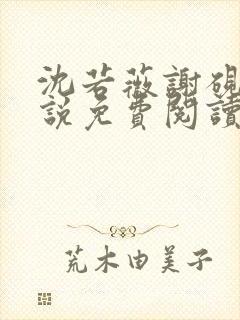 沈若薇謝硯
說免費閱讀
荒木由美子